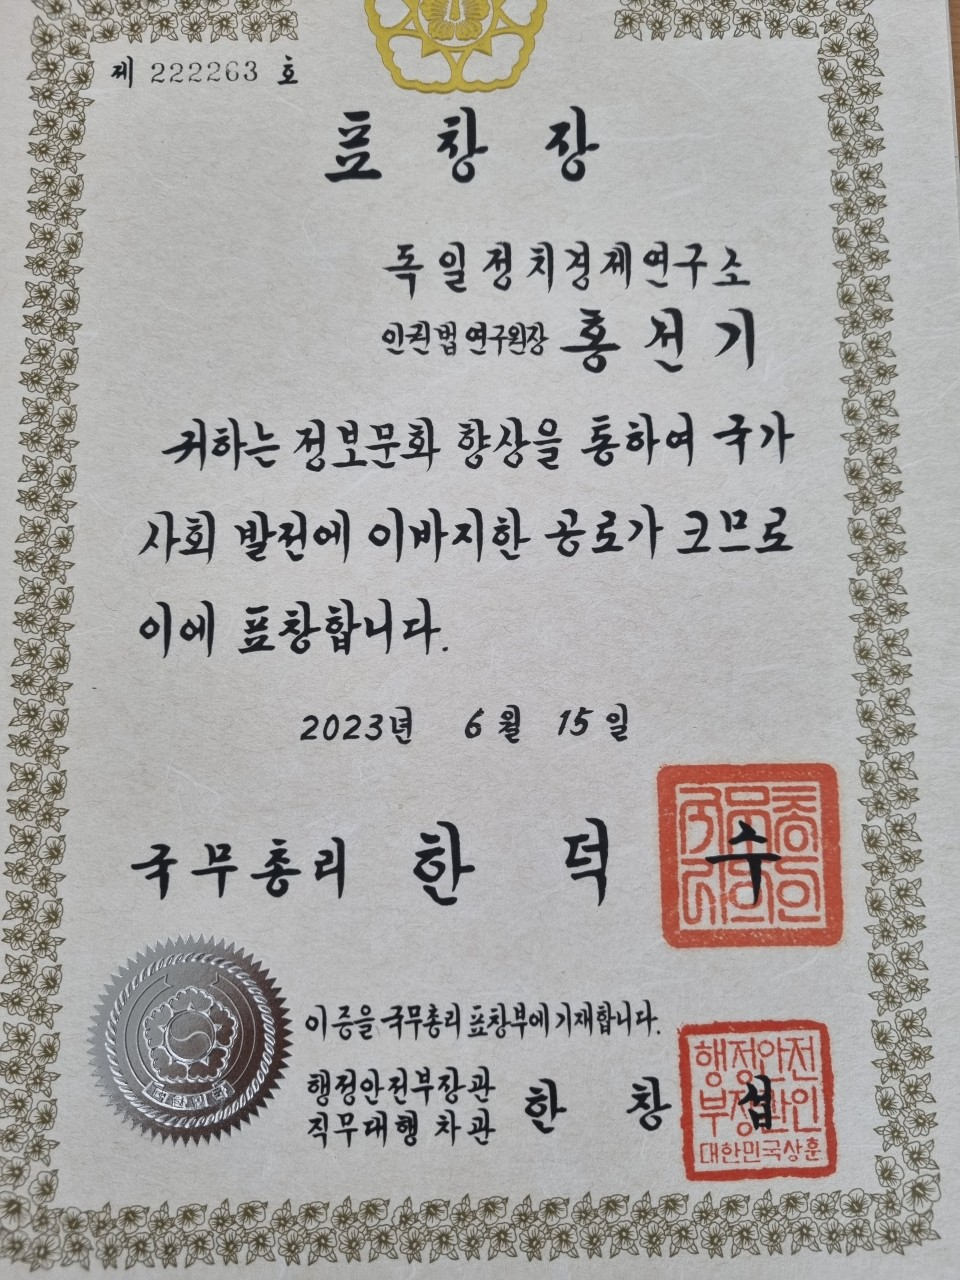 제 222263 호
표 창 장
독일정치경제연구소
인권법연구원장 홍 선 기
귀하는 정보문화 향상을 통하여 국가
사회 발전에 이바지한 공로가 크므로
이에 표창합니다.
2023년 6월 15일
국무총리 한 덕 수
이 증을 국무총리 표창부에 기재합니다.
행정안전부장관
직무대행 차관 한 창 섭
행정안전
부장관인
대한민국상훈
대한민국